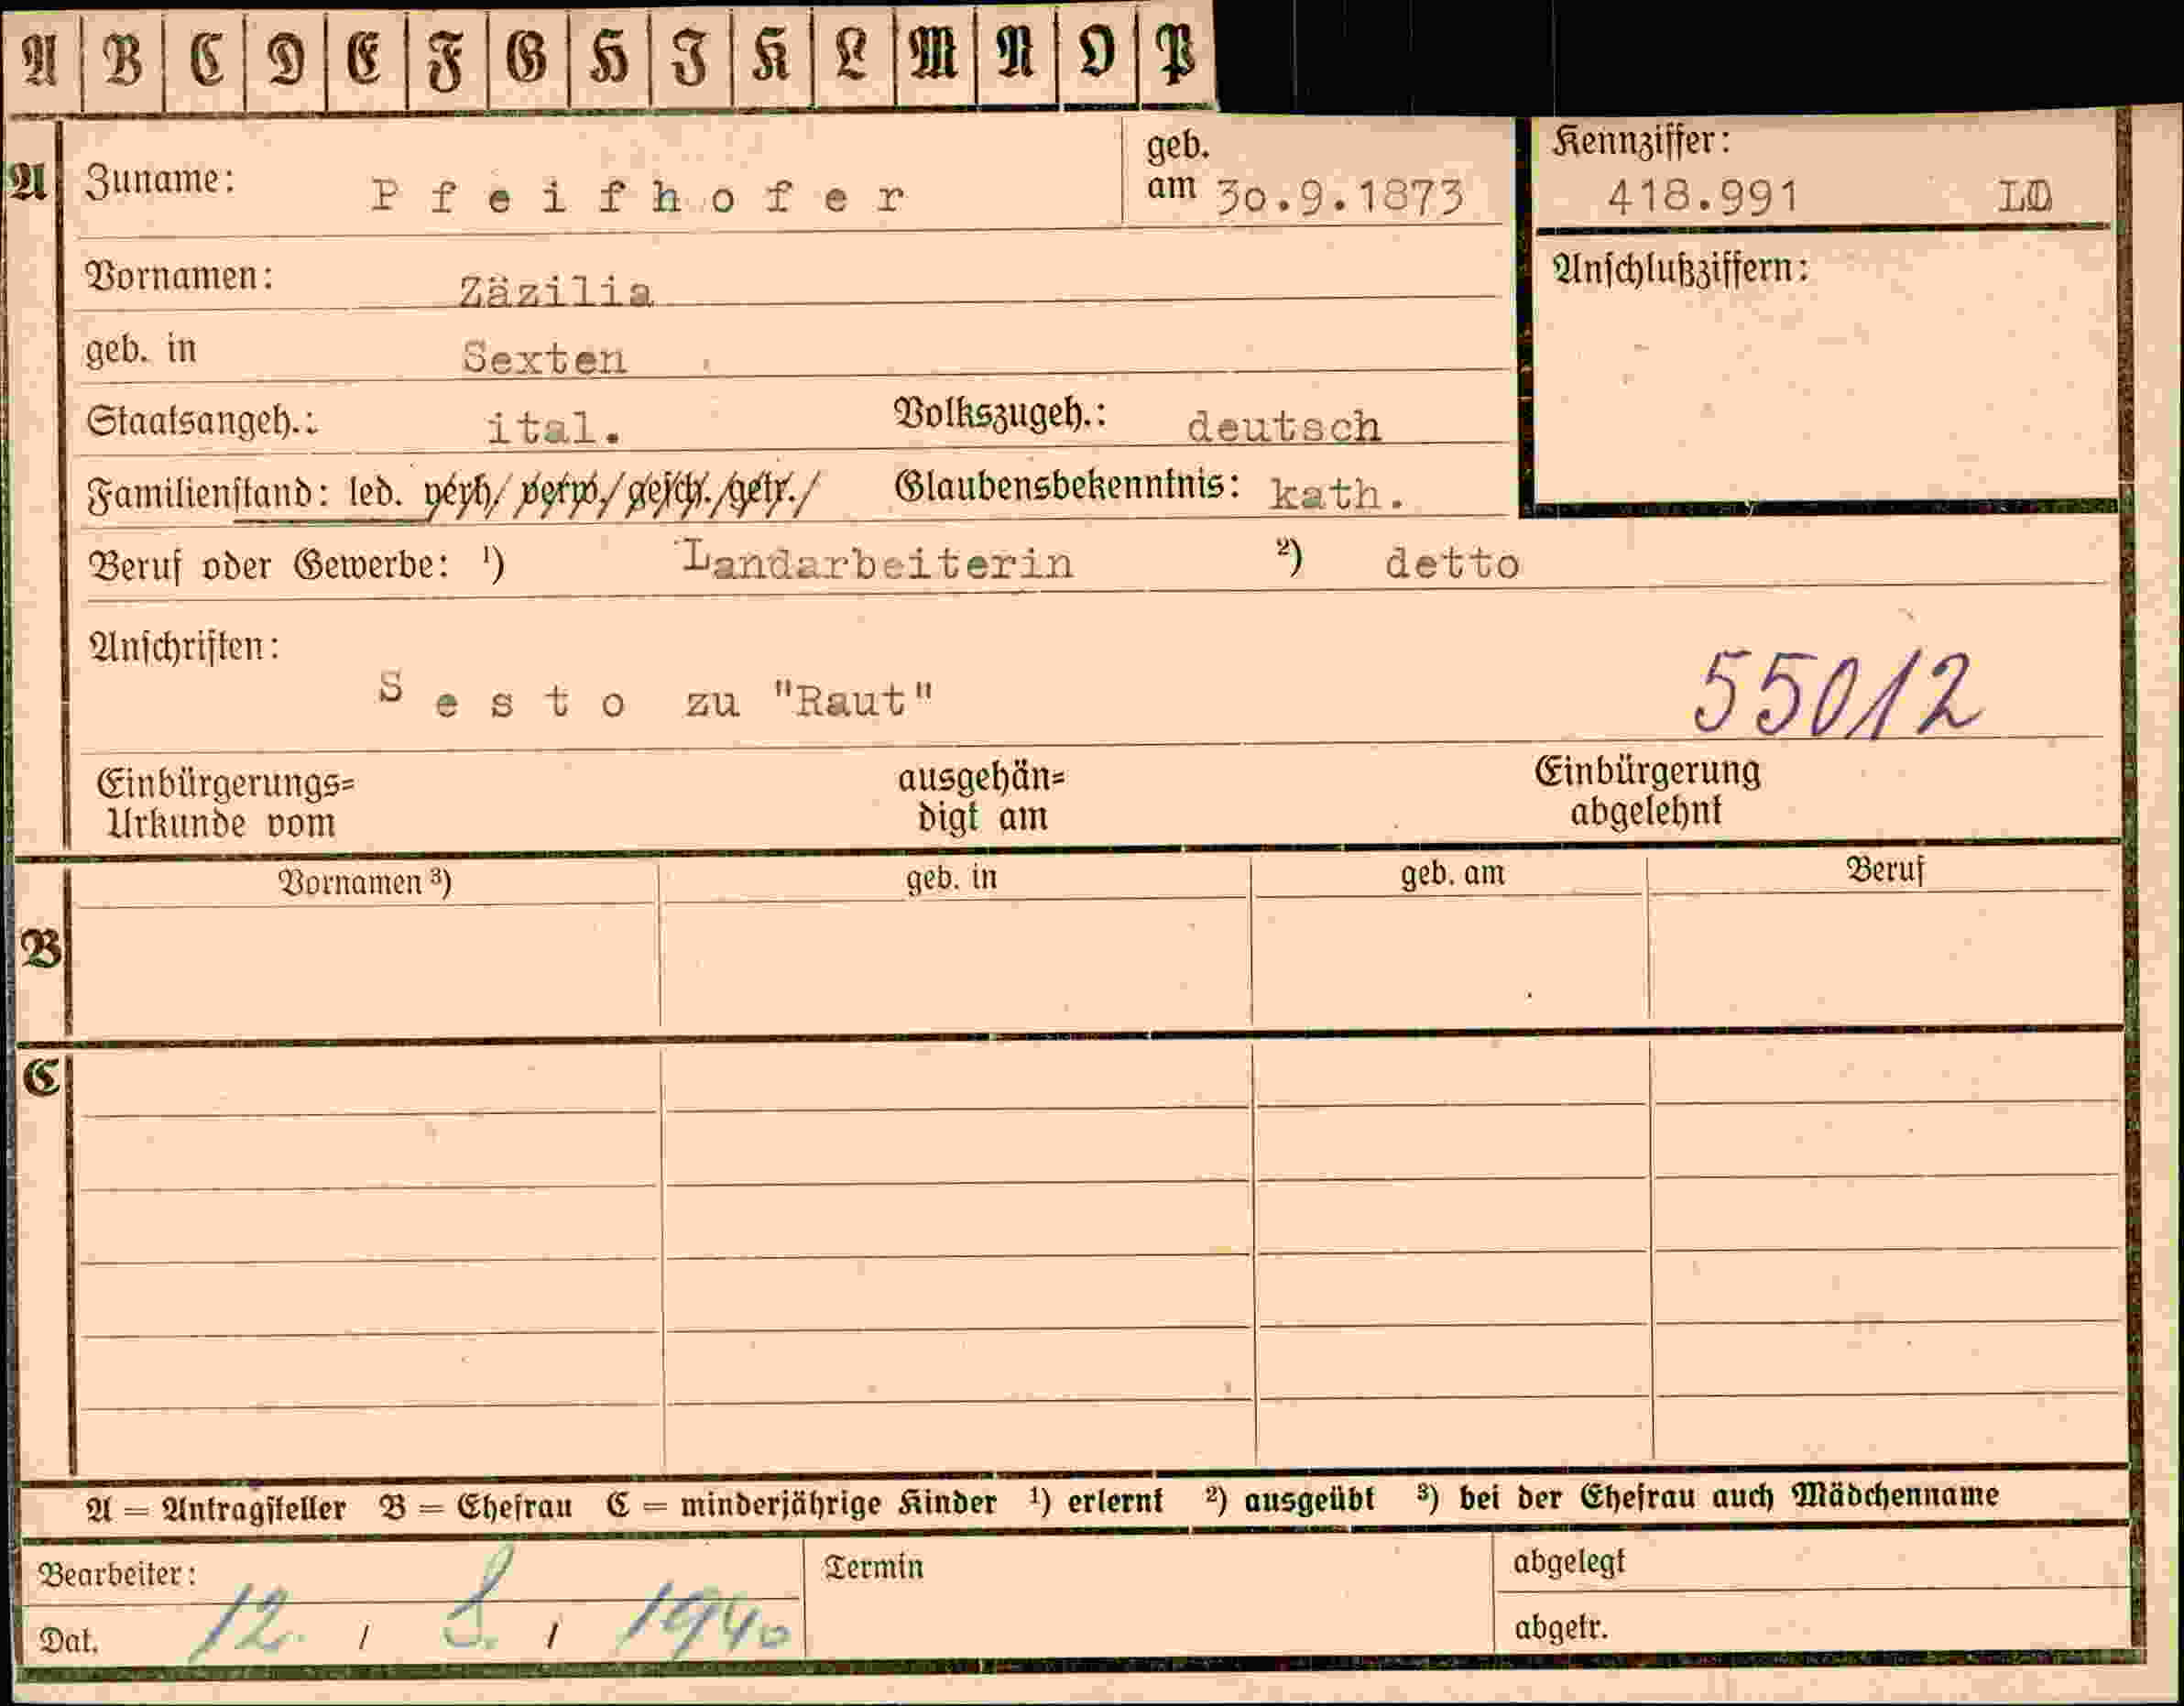 A B C D E F G H I K L M N O P
A Zuname: Pfeifhofer geb. am 30.9.1873 Kennziffer: 418.991 LD
Vornamen: Zäzilia Anschlußziffern:
geb. in Sexten
Staatsangeh.: ital. Volkszugeh.: deutsch
Familienstand: led. verh/ verw./ gesch./getr./ Glaubensbekenntnis: kath.
Beruf oder Gewerbe: ¹) Landarbeiterin ²) detto
Anschriften:
Sesto zu "Raut" 55012
Einbürgerungs= ausgehän= Einbürgerung
Urkunde vom digt am abgelehnt
Vornamen ³) geb. in geb. am Beruf
B
C
A = Antragsteller B = Ehefrau C = minderjährige Kinder ¹) erlernt ²) ausgeübt ³) bei der Ehefrau auch Mädchenname
Bearbeiter: Termin abgelegt
Dat. 12. / / 1940 abgetr.